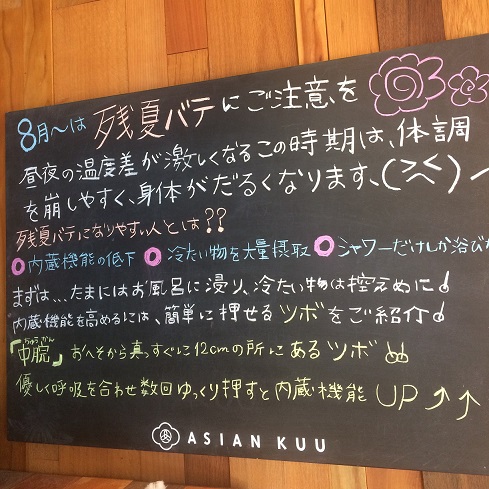 8月〜は 残夏バテにご注意を
昼夜の温度差が激しくなるこの時期は、体調
を崩しやすく、身体がだるくなります、(>_<)
残夏バテになりやすい人とは??
○内蔵機能の低下 ○冷たい物を大量摂取 ○シャワーだけしか浴び
まずは…たまにはお風呂に浸り、冷たい物は控えめに!
内蔵機能を高めるには、簡単に押せるツボをご紹介!
「中脘」おへそから真っすぐに12cmの所にあるツボ!!
優しく呼吸を合わせ数回ゆっくり押すと内蔵機能UP↑↑
ASIAN KUU